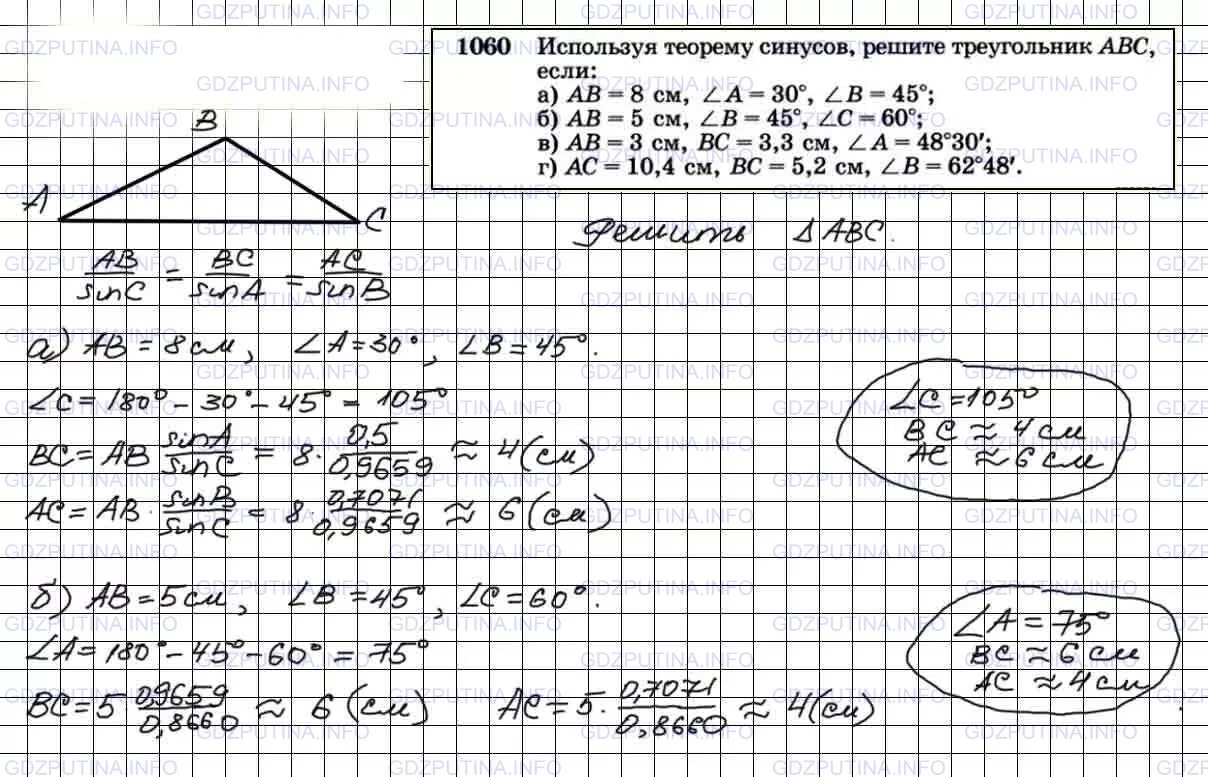 GDZPUTINA.INFO
1060 Используя теорему синусов, решите треугольник ABC,
если:
а) AB = 8 см, ∠A = 30°, ∠B = 45°;
б) AB = 5 см, ∠B = 45°, ∠C = 60°;
в) AB = 3 см, BC = 3,3 см, ∠A = 48°30′;
г) AC = 10,4 см, BC = 5,2 см, ∠B = 62°48′.
B
A
C
Решить ΔABC.
AB/sinC = BC/sinA = AC/sinB
а) AB = 8 см, ∠A = 30°, ∠B = 45°.
∠C = 180° − 30° − 45° = 105°
BC = AB sinA/sinC = 8 · 0,5/0,9659 ≈ 4 (см)
AC = AB · sinB/sinC = 8 · 0,7071/0,9659 ≈ 6 (см)
∠C = 105°
BC ≈ 4 см
AC ≈ 6 см
б) AB = 5 см, ∠B = 45°, ∠C = 60°.
∠A = 180° − 45° − 60° = 75°
BC = 5 0,9659/0,8660 ≈ 6 (см) AC = 5 · 0,7071/0,8660 ≈ 4 (см)
∠A = 75°
BC ≈ 6 см
AC ≈ 4 см